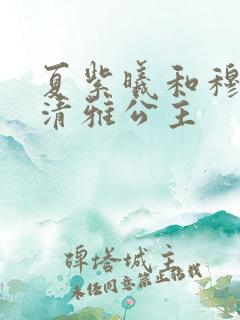 夏紫曦和穆
清雅公主
碑塔城主
未经同意禁止转载